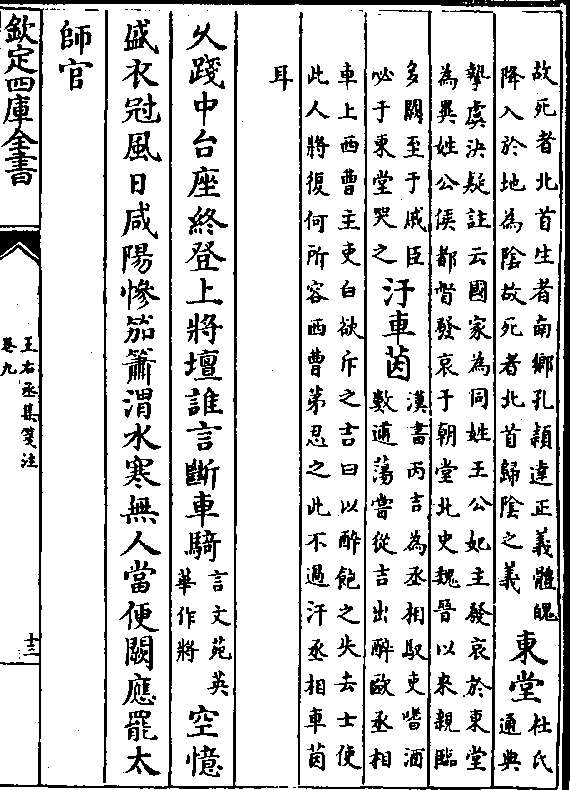 故死者北首生者南鄉孔穎達正義體魄
降入於地為陰故死者北首歸陰之義
東堂
杜氏
通典
摯虞決疑註云國家為同姓王公妃主發哀於東堂
為異姓公侯都督發哀于朝堂北史魏晉以來親臨
多闕至于戚臣
必于東堂哭之
汙車茵
漢書丙吉為丞相馭吏嗜酒
數逋蕩嘗從吉出醉歐丞相
車上西曹主吏白欲斥之吉曰以醉飽之失去士使
此人將復何所容西曹第忍之此不過汙丞相車茵
耳
久踐中台座終登上將壇誰言斷車騎
言文苑英
華作將
空憶
盛衣冠風日咸陽慘笳簫渭水寒無人當便闕應罷太
師官
欽定四庫全書
王右丞集箋注
卷九
十三